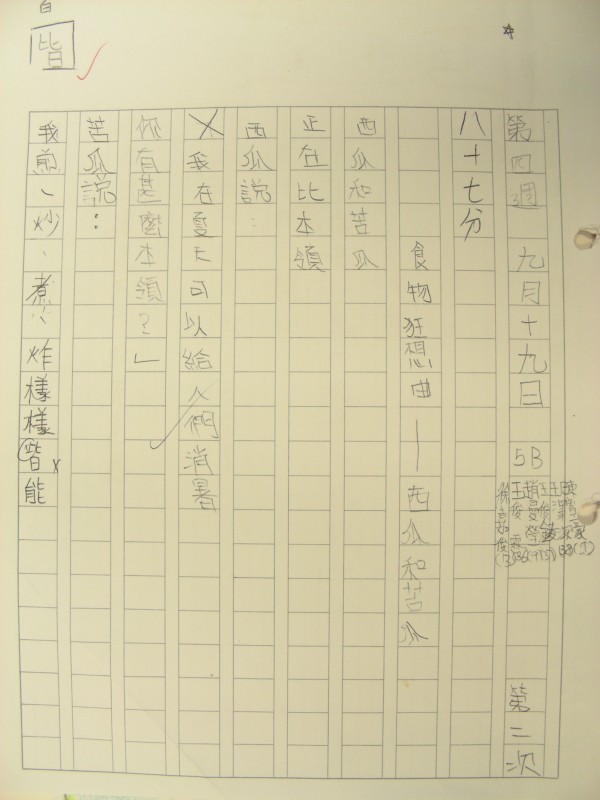 白
皆
第四週 九月十九日 5B 第二次
八十七分
食物狂想曲—西瓜和苦瓜
西瓜和苦瓜
正在比本領
西瓜說：
我在夏天可以給人們消暑
你有甚麼本領？」
苦瓜說：
我煎、炒、煮、炸樣樣皆能